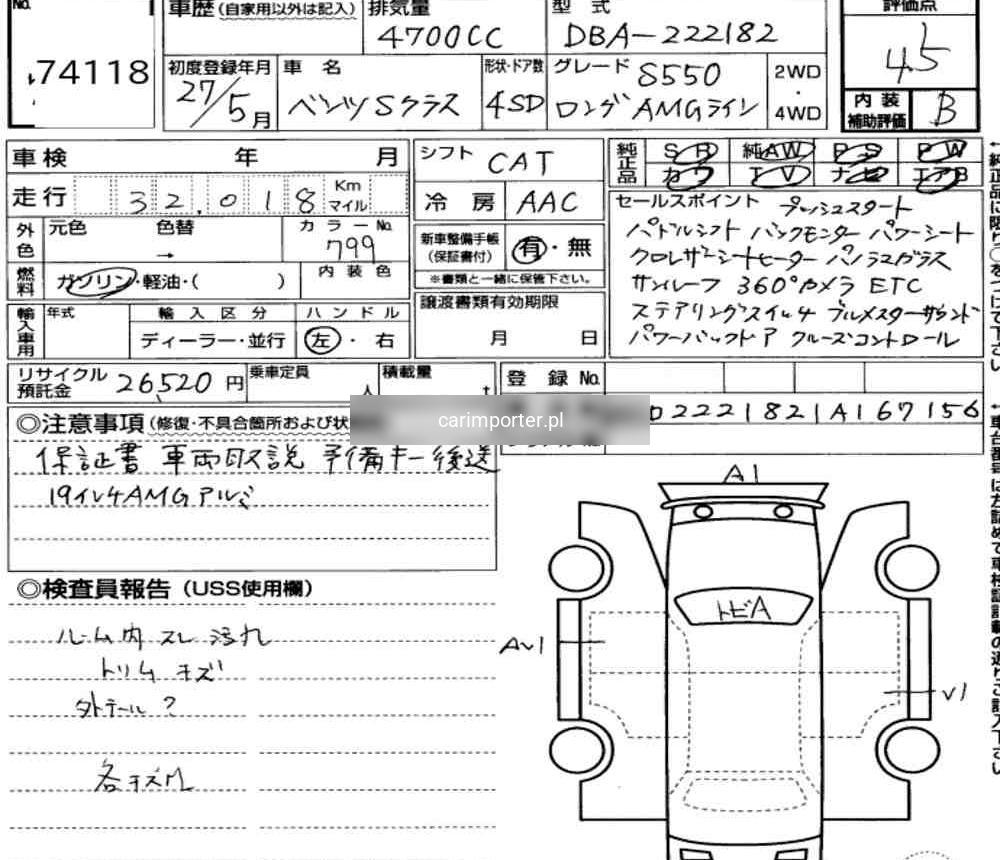 No.
74118
車歴 (自家用以外は記入) 排気量 型式
4700CC DBA-222182
評価点
4.5
初度登録年月 車名 形状・ドア数 グレード S550
27/5月 ベンツSクラス 4SD ロングAMGライン
2WD・4WD
内装補助評価 B
車検 年 月
シフト CAT
純正品 SR 純AW PS PW
カワ TV ナビ エアB
走行 32,018 Km マイル
冷房 AAC
外色 元色 色替 カラーNo.
→ 799
新車整備手帳 (保証書付) 有・無
※書類と一緒に保管下さい。
セールスポイント プッシュスタート
パドルシフト バックモニター パワーシート
クロレザーシートヒーター パノラマガラス
サンルーフ 360°カメラ ETC
ステアリングスイッチ ブルメスターサウンド
パワーバックドア クルーズコントロール
燃料 ガソリン・軽油・( ) 内装色
譲渡書類有効期限
月 日
輸入車用 年式 輸入区分 ハンドル
ディーラー・並行 左・右
リサイクル預託金 26,520円 乗車定員 人 積載量 t
登録No.
carimporter.pl
D2221821A167156
◎注意事項 (修復・不具合箇所および状
保証書 車両取説 予備キー後送
19インチAMGアルミ
◎検査員報告 (USS使用欄)
ルーム内 スレ 汚れ
トリム キズ
外テール?
各キズ凹
A1
トビA
V1